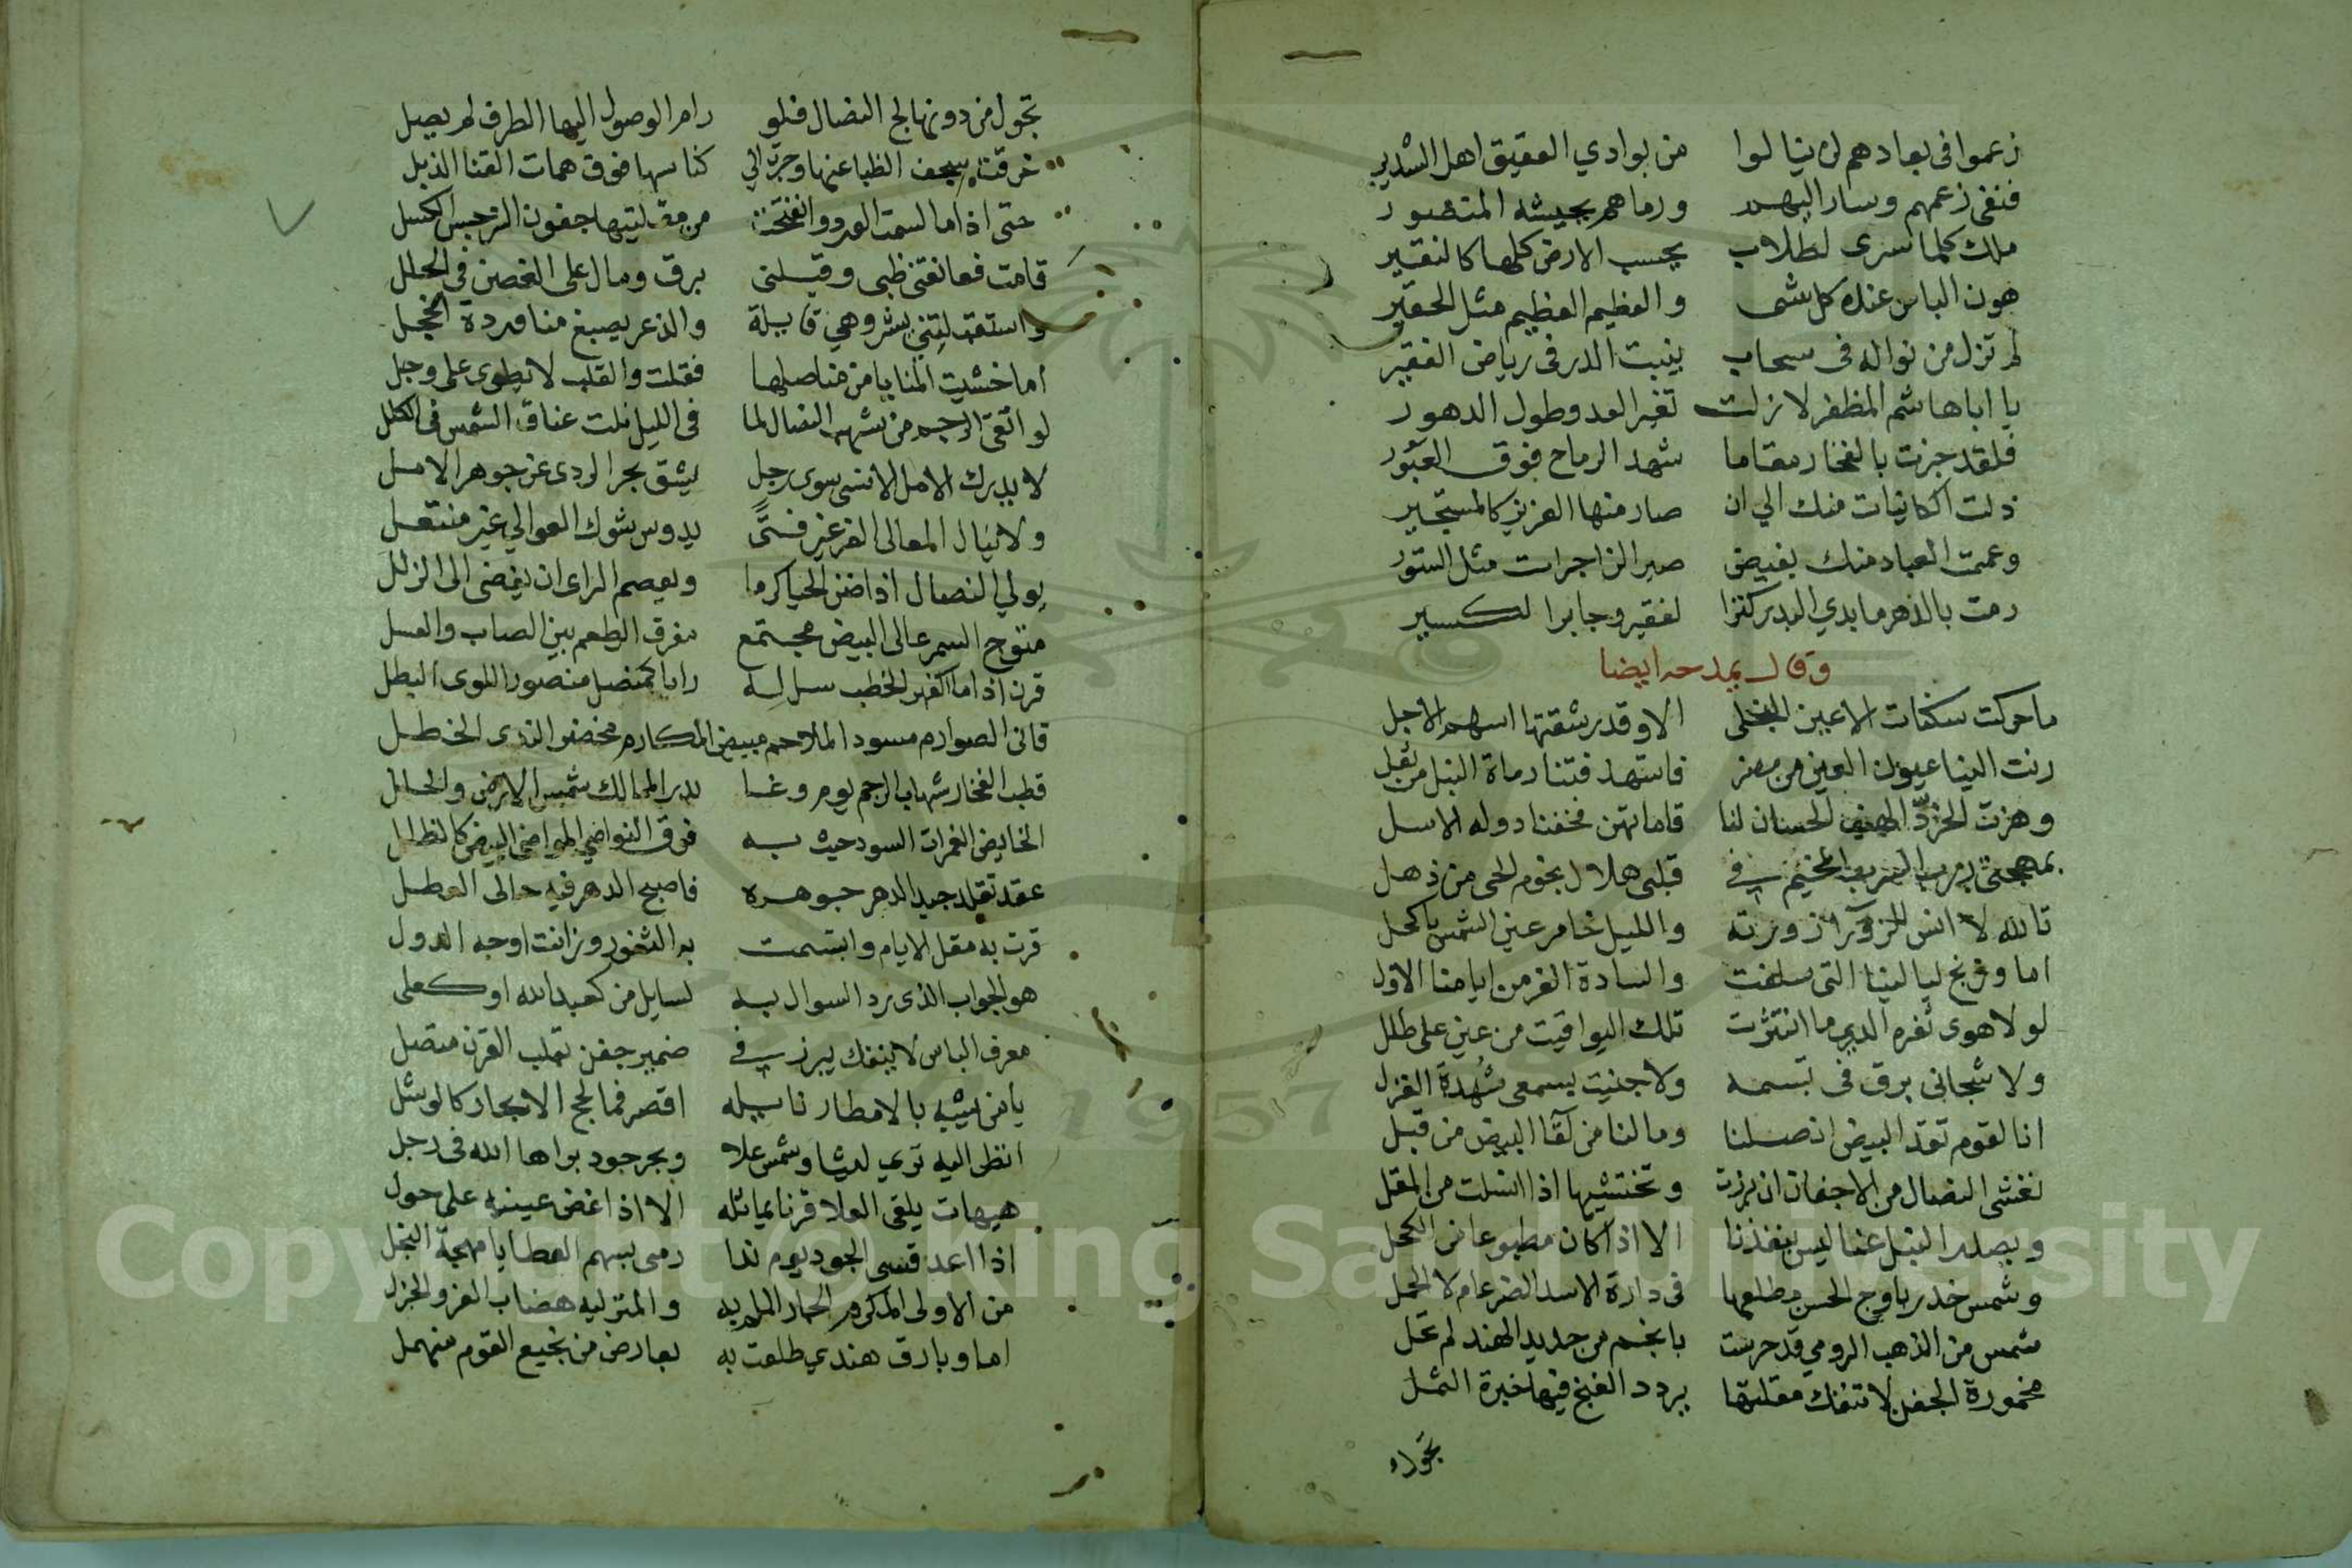 زعموا فى بعادهم لن ينالوا من بوادي العقيق اهل السدير
فنفى زعمهم وسار اليهم ورماهم بجيشه المنصور
ملك كلما سرى لطلاب يحسب الارض كلها كالنقير
هون الباس عنده كل شى والعظيم العظيم مثل الحقير
لم تزل من نواله فى سحاب ينبت الدر فى رياض الفقير
يا اباهاشم المظفر لا زلت تغير العدو طول الدهور
فلقد جزت بالفخار مقاما شهد الرماح فوق العبور
ذلت الكاينات منك الي ان صار منها العزيز كالمستجير
وعمت العباد منك بفيض صير الزاجرات مثل الستور
دمت بالدهر ما بدي البدر كنزا لفقير وجابرا لكسير
وقال يمدحه ايضا
ما حركت سكنات الاعين النجل الا وقد رشقتها اسهم الاجل
رنت الينا عيون العين من مضر فاستهدفتنا رماة النبل من ثعل
وهزت الخرّد الهيف الحسان لنا قاماتهن فخفنا دولة الاسل
بمهجتى سرب المخيم في قبلى هلال نجوم الحى من ذهل
تالله لا انس للزورآ زورته والليل خامر عين الشمس بالكحل
اما وغنج ليالينا التى سلفت والسادة الغر من ايامنا الاول
لولا هوى ثغره الدري ما انتثرت تلك اليواقيت من عيني على طلل
ولا شجانى برق فى تبسمه ولا جنيت بسمعى شُهدة الغزل
انا لقوم تقد البيض انصلنا وما لنا من لقآ البيض من قبل
نغشى النصال من الاجفان ان برزت وتختشيها اذا انسلت من المقل
وبصدر النبل عنا ليس ينفذنا الا اذا كان مطبوعا من الكحل
وشمس خدر باوج الحسن مطلعها فى دارة الاسد الضرغام لا الحمل
شمس من الذهب الرومي قد حرست بانجم من حديد الهند لم تحل
مخمورة الجفن لا تنفك مقلتها يردد الغنج فيها خيرة الثمل
تجول
تجول من دونها لج النصال فلو رام الوصول اليها الطرف لم يصل
غرقته بسجف الظبا عنها وجز الي كناسها فوق همات القنا الذبل
حتى اذا ما لسمت الدر وانفتحت من مقلتيها جفون النرجس الكسل
قامت فعانقتنى ظبى وقبلنى برق ومال على الغصن فى الحلل
واستقبلتني ببشر وهي قايلة والذعر يصبغ منا وردة الخجل
اما خشيت المنايا من مناصلها فقلت والقلب لا يطوى على وجل
لو اتقى الرجم من شهب النصال لما فى الليل نلت عناق الشمس فى الكلل
لا يدرك الامل الاسنى سوى رجل يشق بحر الردى عن جوهر الامل
ولا ينال المعالى الغر غير فتًى يدوس شوك العوالي غير منتعل
يولي النصال اذا ضن الحيا كرما ويعصم الراى ان يفضى الى الزلل
متوج السمر عالى البيض مجتمع مفرق الطعم بين الصاب والعسل
قرن اذا ما اكفهر الخطب سل له رايا كمنصل منصور اللوى البطل
قانى الصوارم مسود الملاحم مبيض المكارم مخضر الندى الخضل
قطب الفخار شهاب الرجم يوم وغا بدر الممالك شمس الارض والحلل
الخايض الغمرات السود حيث به فوق النواضى المواضى البيض كالظلل
عقد تقلد جيد الدهر جوهره فاصبح الدهر فيه حالى العطل
قرت به مقل الايام وابتسمت به الثغور وزانت اوجه الدول
هو الجواب الذى يرد السوال به لسايل من كعبدالله او كعلى
معرف الباس لا ينفك يبرز في ضمير جفن بقلب القرن متصل
يا من يشبه بالامطار نايله اقصر فما لجج الابحار كالوشل
انظر اليه تري ليثا وشمس علا وبحر جود براها الله فى رجل
هيهات يلقى العلا قرنا يماثله الا اذا غض عينيه على حول
اذا اعد قسى الجود يوم ندا رمى بسهم العطايا مهجة البخل
من الاولى المكرم الجار الملم به والمنزليه هضاب العز والجزل
اما وبارق هندي طلعت به بعارض من نجيع القوم منهمل
Copyright © King Saud University
1957